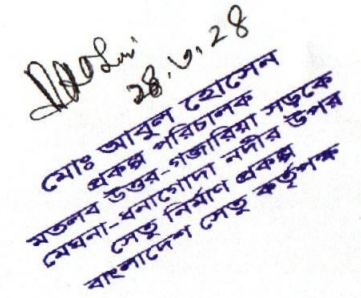 ২৪.৬.২৪
মোঃ আবুল হোসেন
প্রকল্প পরিচালক
মতলব উত্তর-গজারিয়া সড়কে
মেঘনা-ধনাগোদা নদীর উপর
সেতু নির্মাণ প্রকল্প
বাংলাদেশ সেতু কর্তৃপক্ষ